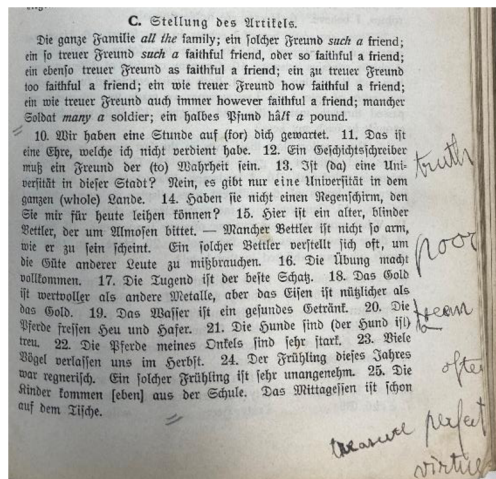 C. Stellung des Artikels.
Die ganze Familie all the family; ein solcher Freund such a friend;
ein so treuer Freund such a faithful friend, oder so faithful a friend;
ein ebenso treuer Freund as faithful a friend; ein zu treuer Freund
too faithful a friend; ein wie treuer Freund how faithful a friend;
ein wie treuer Freund auch immer however faithful a friend; mancher
Soldat many a soldier; ein halbes Pfund hâlf a pound.
10. Wir haben eine Stunde auf (for) dich gewartet. 11. Das ist
eine Ehre, welche ich nicht verdient habe. 12. Ein Geschichtschreiber
muß ein Freund der (to) Wahrheit sein. 13. Ist (da) eine Uni-
versität in dieser Stadt? Nein, es gibt nur eine Universität in dem
ganzen (whole) Lande. 14. Haben sie nicht einen Regenschirm, den
Sie mir für heute leihen können? 15. Hier ist ein alter, blinder
Bettler, der um Almosen bittet. — Mancher Bettler ist nicht so arm,
wie er zu sein scheint. Ein solcher Bettler verstellt sich oft, um
die Güte anderer Leute zu mißbrauchen. 16. Die Übung macht
vollkommen. 17. Die Tugend ist der beste Schatz. 18. Das Gold
ist wertvoller als andere Metalle, aber das Eisen ist nützlicher als
das Gold. 19. Das Wasser ist ein gesundes Getränk. 20. Die
Pferde fressen Heu und Hafer. 21. Die Hunde sind (der Hund ist)
treu. 22. Die Pferde meines Onkels sind sehr stark. 23. Viele
Vögel verlassen uns im Herbst. 24. Der Frühling dieses Jahres
war regnerisch. Ein solcher Frühling ist sehr unangenehm. 25. Die
Kinder kommen [eben] aus der Schule. Das Mittagessen ist schon
auf dem Tische.
truth
poor
often
treasure perfect
virtue